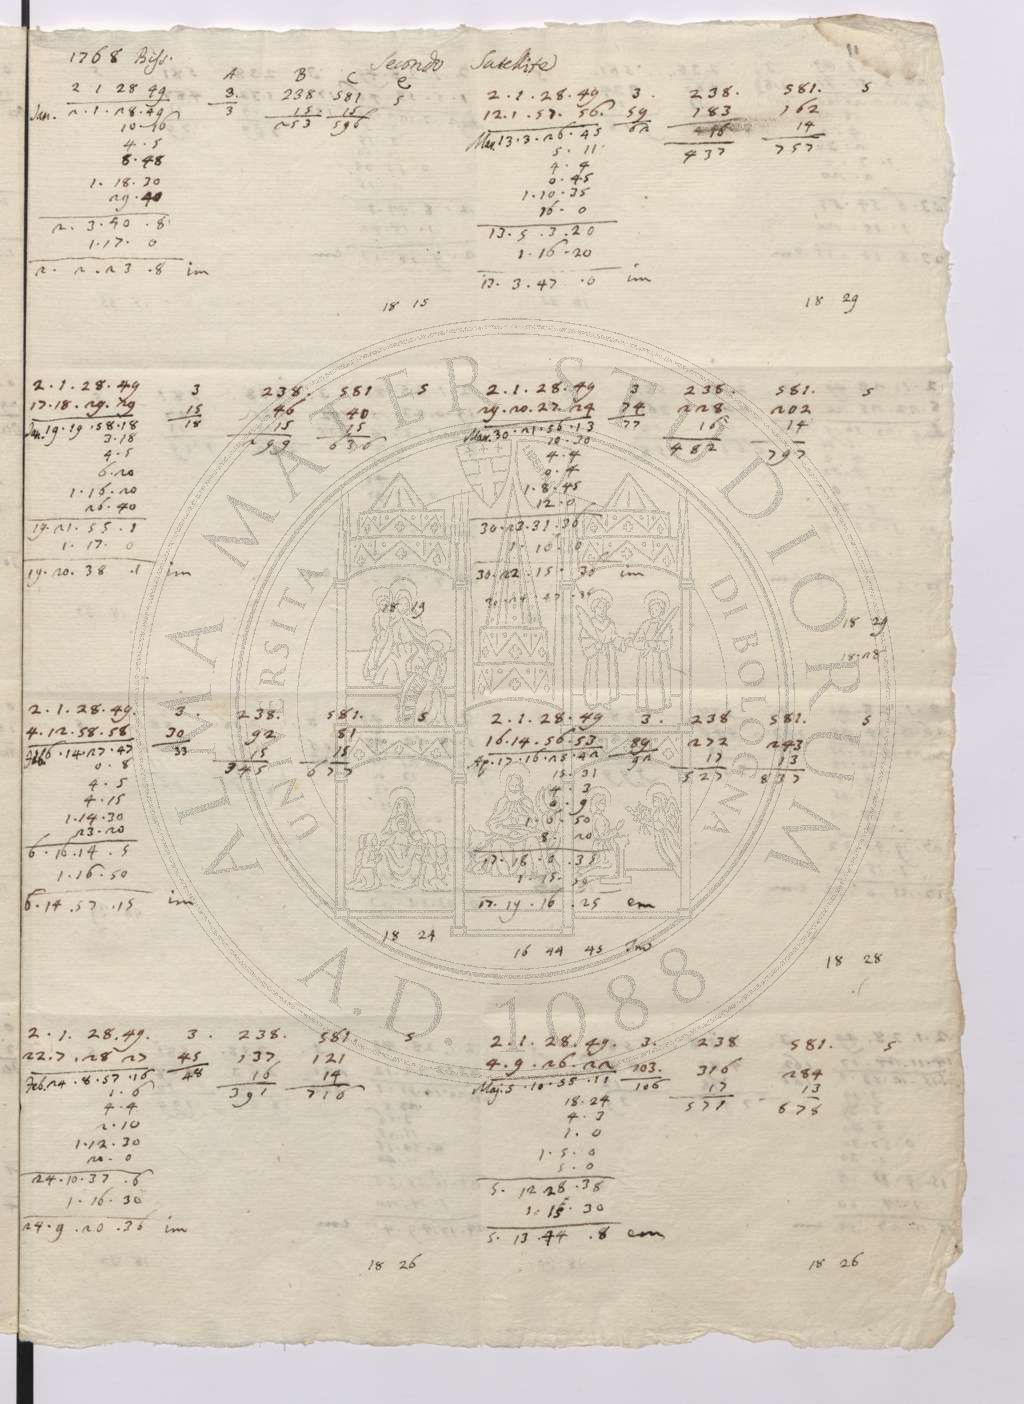 11
1768 Biss. Secondo Satellite
A B C e
2 1 28 49 3. 238 581 5
Jan. 2.1.28.49 3 15 15
10.16 253 596
4.5
8.48
1.18.30
29.40
2.3.40.8
1.17.0
2.2.23.8 im
18 15
2.1.28.49 3. 238. 581. 5
12.1.57.56. 59 183 162
Mar.13.3.26.45 62 16 14
5.11 437 757
4.4
0.45
1.10.35
16.0
13.5.3.20
1.16.20
13.3.47.0 im
18 29
2.1.28.49 3 238. 581 5
17.18.29.29 15 46 40
Jan.19.19.58.18 18 15 15
3.18 299 636
4.5
6.20
1.16.20
26.40
19.21.55.1
1.17.0
19.20.38.1 im
18 19
2.1.28.49 3 238. 581. 5
29.20.27.24 74 228 202
Mar.30.21.56.13 77 16 14
18.30 482 797
4.4
0.4
1.8.45
12.0
30.23.31.36
1.16.0
30.22.15.36 im
18 29
18.28
2.1.28.49. 3. 238. 581. 5
4.12.58.58 30 92 81
Feb.6.14.27.47 33 15 15
0.8 345 677
4.5
4.15
1.14.30
23.20
6.16.14.5
1.16.50
6.14.57.15 im
18 24
2.1.28.49 3. 238 581. 5
16.14.56.53 89 272 243
Ap.17.16.25.42 92 17 13
15.31 527 837
4.3
0.9
1.6.50
8.20
17.18.0.35
1.15.50
17.19.16.25 em
16 44 45 Im
18 28
2.1.28.49. 3. 238. 581. 5
22.7.28.27 45 137 121
Feb.24.8.57.16 48 16 14
1.6 391 716
4.4
2.10
1.12.30
20.0
24.10.37.6
1.16.30
24.9.20.36 im
18 26
2.1.28.49. 3. 238 581. 5
4.9.26.22 103. 316 284
Maj.5.10.55.11 106 17 13
18.24 571 878
4.3
1.0
1.5.0
5.0
5.12 28.38
1.15.30
5.13.44.8 em
18 26
ALMA MATER STUDIORUM
UNIVERSITÀ DI BOLOGNA
A.D. 1088